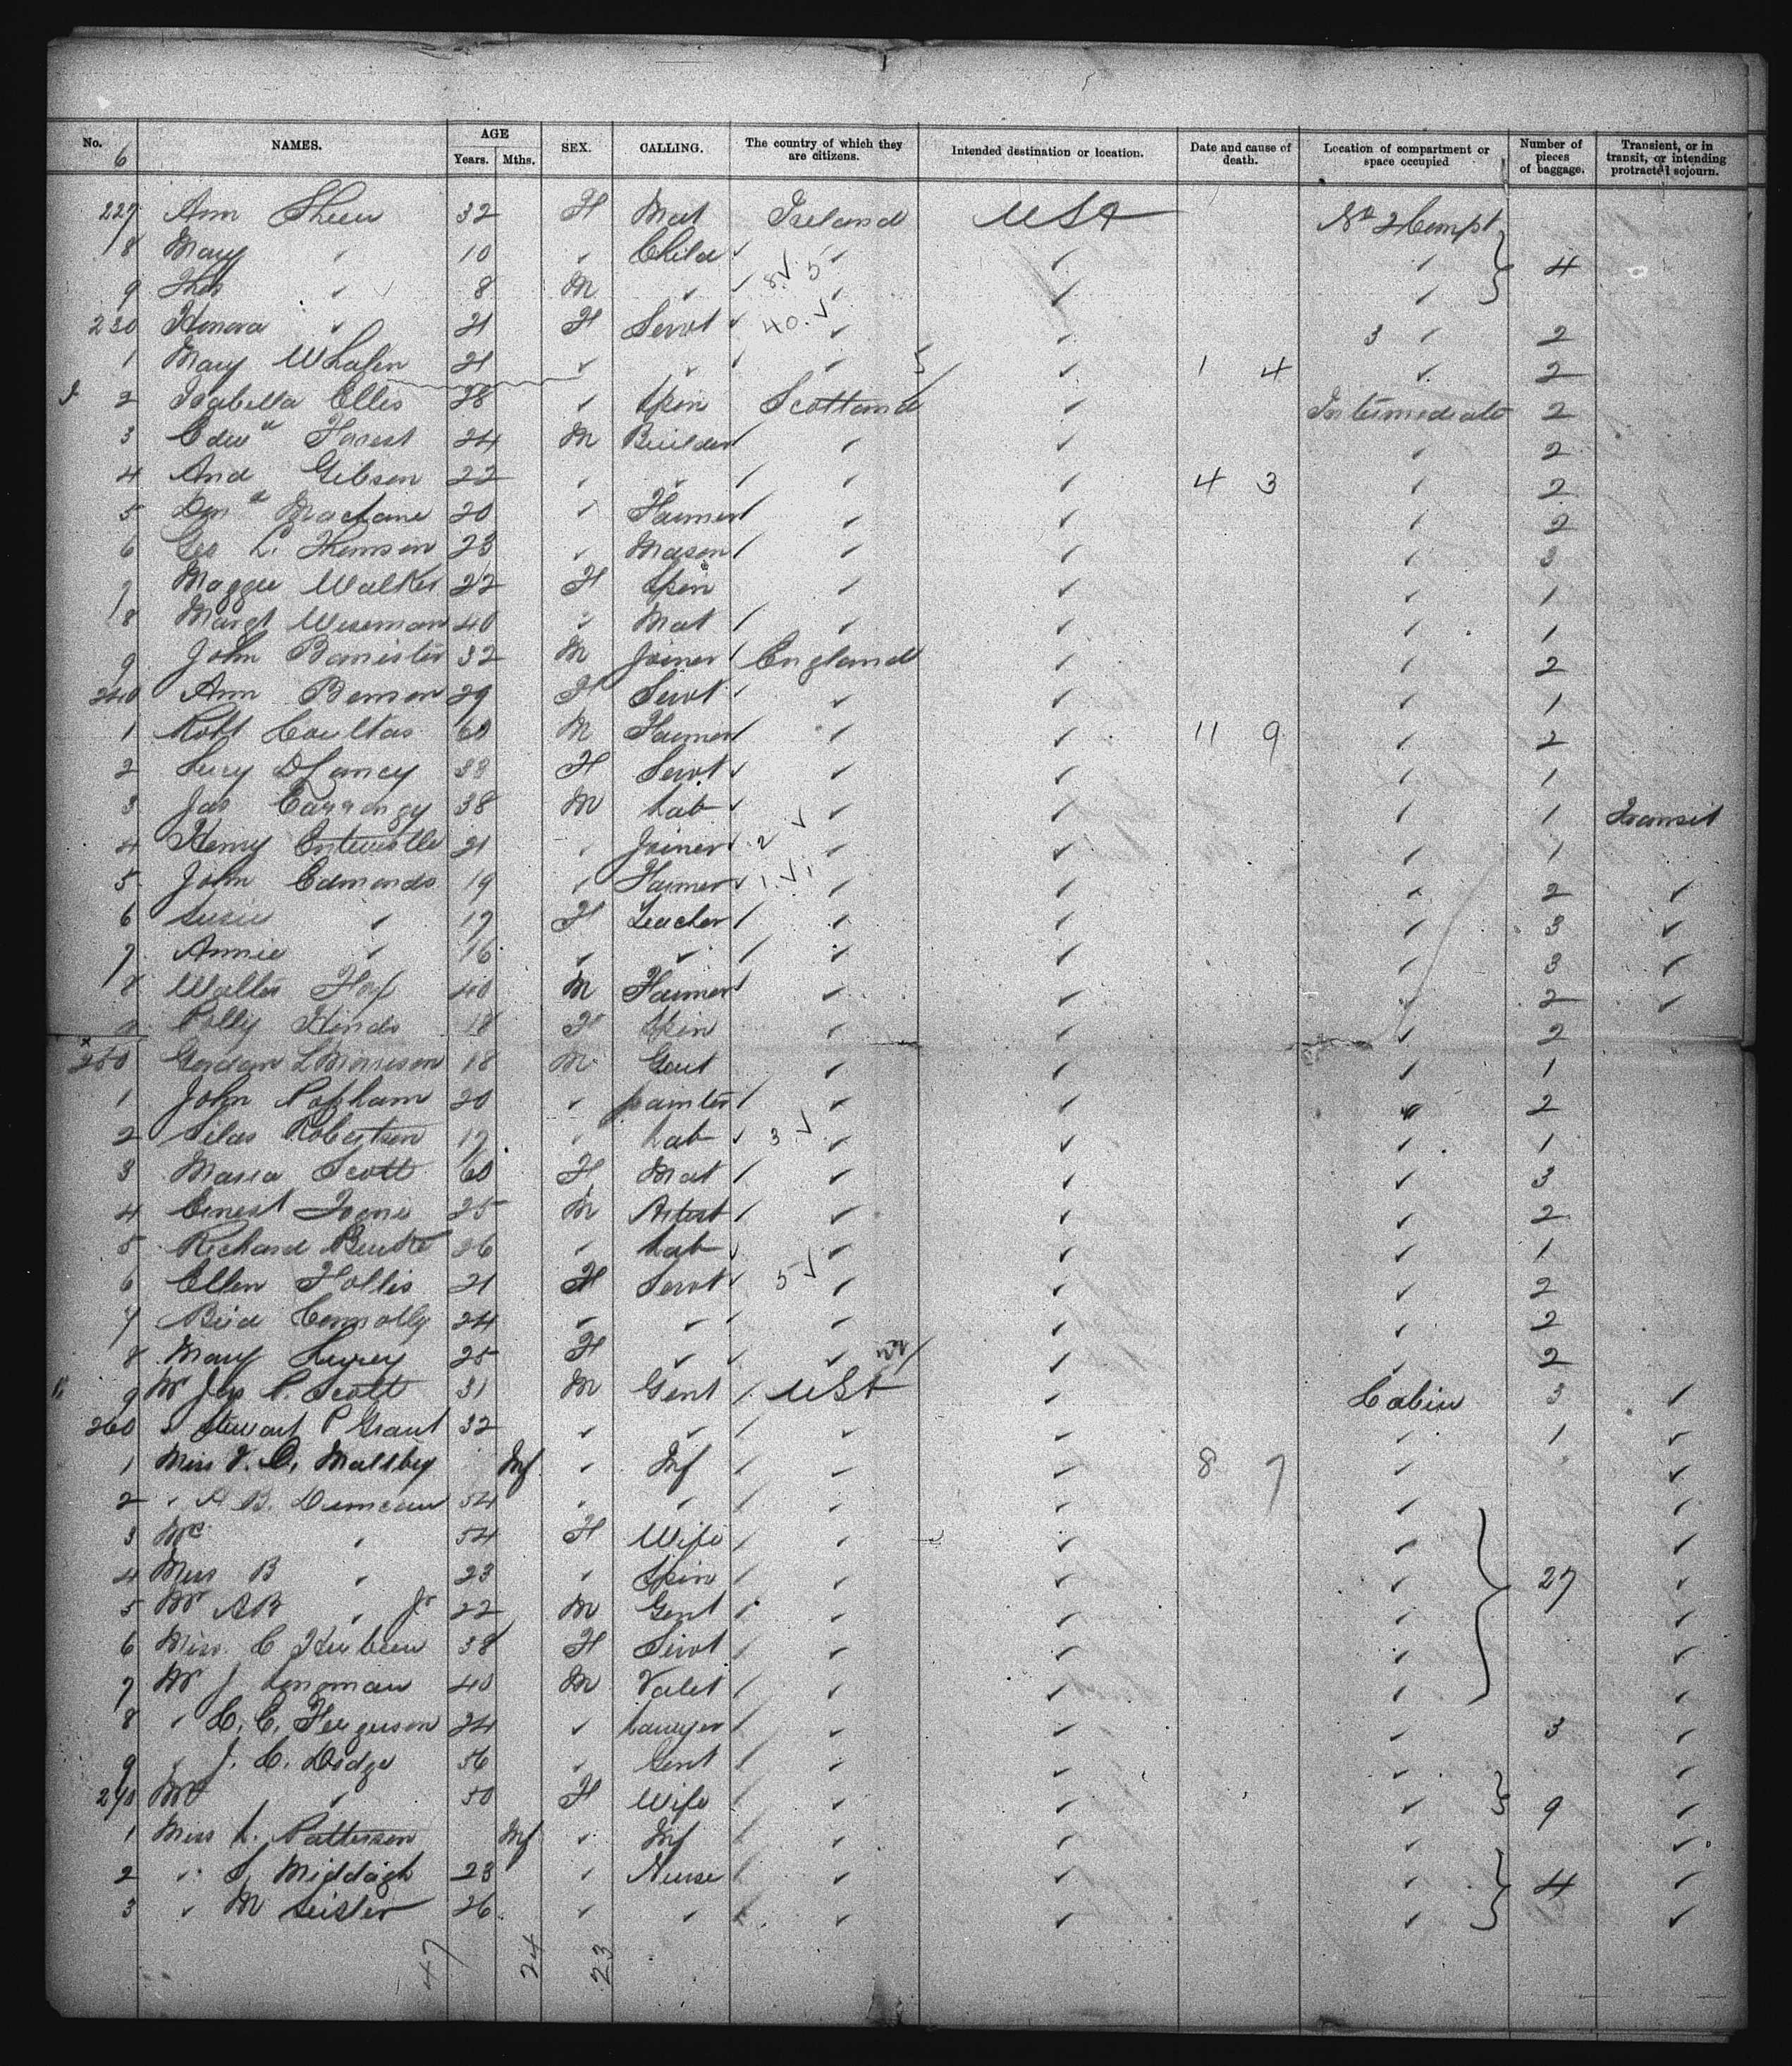 No. NAMES. AGE Years. Mths. SEX. CALLING. The country of which they are citizens. Intended destination or location. Date and cause of death. Location of compartment or space occupied Number of pieces of baggage. Transient, or in transit, or intending protracted sojourn.
6
227 Ann Sheen 32 F Mat Ireland USA No 2 Compt
8 Mary " 10 " Child ✓ ✓ ✓ ✓ 4
9 Thos " 8 M ✓ ✓ ✓ ✓ ✓
230 Honora " 21 F Servt ✓ ✓ ✓ 3 ✓ 2
1 Mary Whalen 21 ✓ ✓ ✓ ✓ ✓ 1 4 ✓ 2
2 Isabella Ellis 28 ✓ Spin Scotland ✓ Intermediate 2
3 Edwd Forest 24 M Builder ✓ ✓ ✓ 2
4 And Gibson 22 ✓ ✓ ✓ ✓ 4 3 ✓ 2
5 20 ✓ Farmer ✓ ✓ ✓ 2
6 Geo L. Thomson 23 ✓ Mason ✓ ✓ ✓ 3
7 Maggie Walker 22 F Spin ✓ ✓ ✓ 1
8 Margt Wiseman 40 ✓ Mat ✓ ✓ ✓ 1
9 John Banister 32 M Joiner England ✓ ✓ 2
240 Ann Benson 29 F Servt ✓ ✓ ✓ 1
1 Robt Coultas 60 M Farmer ✓ ✓ 11 9 ✓ 2
2 Lucy 38 F Servt ✓ ✓ ✓ 1
3 Jas 38 M Lab ✓ ✓ ✓ 1 Transit
4 Henry Entwistle 21 ✓ Joiner ✓ ✓ ✓ 1
5 John Edmonds 19 ✓ Farmer ✓ ✓ ✓ 2 ✓
6 Susie " 17 F Teacher ✓ ✓ ✓ 3 ✓
7 Annie " 16 ✓ ✓ ✓ ✓ ✓ 3 ✓
8 Walter 40 M Farmer ✓ ✓ ✓ 2 ✓
9 Polly Hinds 18 F Spin ✓ ✓ ✓ 2
250 Gordon 18 M Gent ✓ ✓ ✓ 1
1 John Popham 20 ✓ painter ✓ ✓ ✓ 2
2 Silas Robertson 17 ✓ Lab ✓ ✓ ✓ 1
3 Maria Scott 60 F Mat ✓ ✓ ✓ 3
4 Ernest 25 M Artist ✓ ✓ ✓ 2
5 Richard Burke 26 ✓ Lab ✓ ✓ ✓ 1
6 Ellen Hollis 21 F Servt ✓ ✓ ✓ 2
7 Brid Connolly 24 ✓ ✓ ✓ ✓ ✓ 2
8 Mary 25 F ✓ ✓ ✓ ✓ 2
9 Mr Jas P. Scott 31 M Gent USA ✓ Cabin 3 ✓
260 " Stewart P Grant 32 ✓ ✓ ✓ ✓ ✓ 1 ✓
1 Miss V. C. Maltby Inf ✓ Inf ✓ ✓ 8 7 ✓ ✓
2 " A B. Duncan 54 ✓ ✓ ✓ ✓ ✓ ✓
3 Mrs " 54 F Wife ✓ ✓ ✓ ✓
4 Miss B " 23 ✓ Spin ✓ ✓ ✓ 27 ✓
5 Mr AB " Jr 22 M Gent ✓ ✓ ✓ ✓
6 Miss C 38 F Servt ✓ ✓ ✓ ✓
7 Mr J Longman 40 M Valet ✓ ✓ ✓ ✓
8 " C. C. Ferguson 24 ✓ Lawyer ✓ ✓ ✓ 3 ✓
9 " J. C. Dodge 56 ✓ Gent ✓ ✓ ✓ ✓
270 Mrs " 50 F Wife ✓ ✓ ✓ 9 ✓
1 Miss L. Patterson Inf ✓ Inf ✓ ✓ ✓ ✓
2 " S Middagh 23 ✓ Nurse ✓ ✓ ✓ 4 ✓
3 " M Leister 26 ✓ ✓ ✓ ✓ ✓ ✓
47 24 23